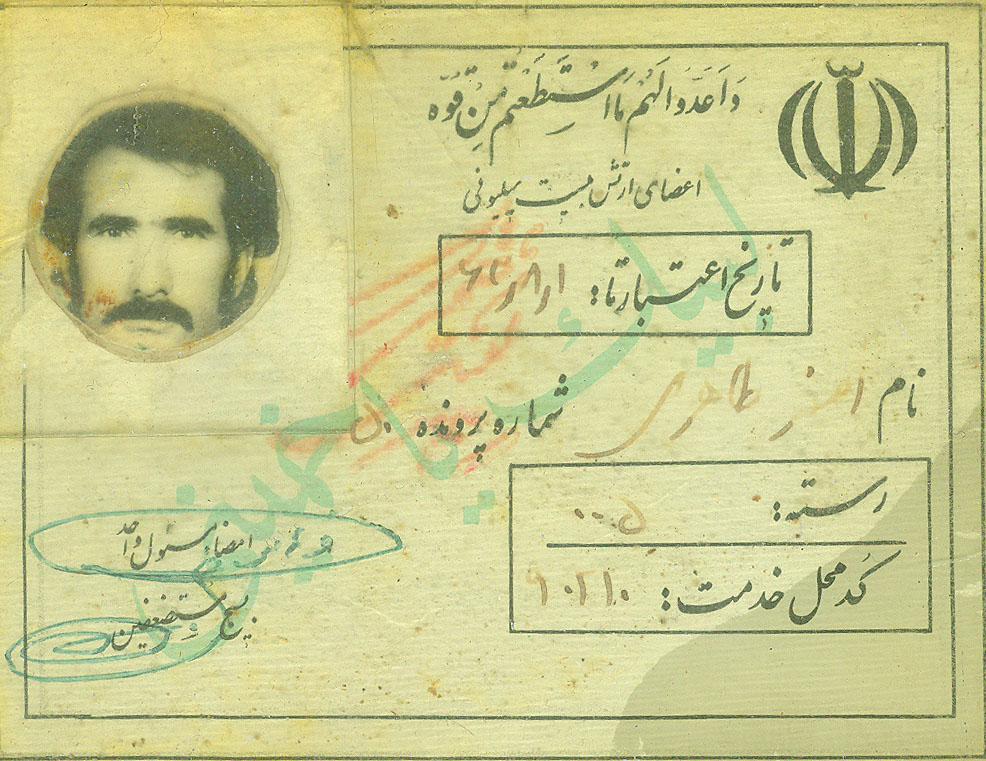 وَاَعِدّوا لَهُم مَااستَطَعتُم مِن قوّه
اعضای ارتش بیست میلیونی
تاریخ اعتبار تا: ۶۲/۸/۱
نام اصغر طاهری
شماره پرونده ۵۰
رسته: ۵۰۰
کد محل خدمت: ۹۰۲۱۰
امضاء مسئول واحد
بسیج مستضعفین
لبیک یا خمینی